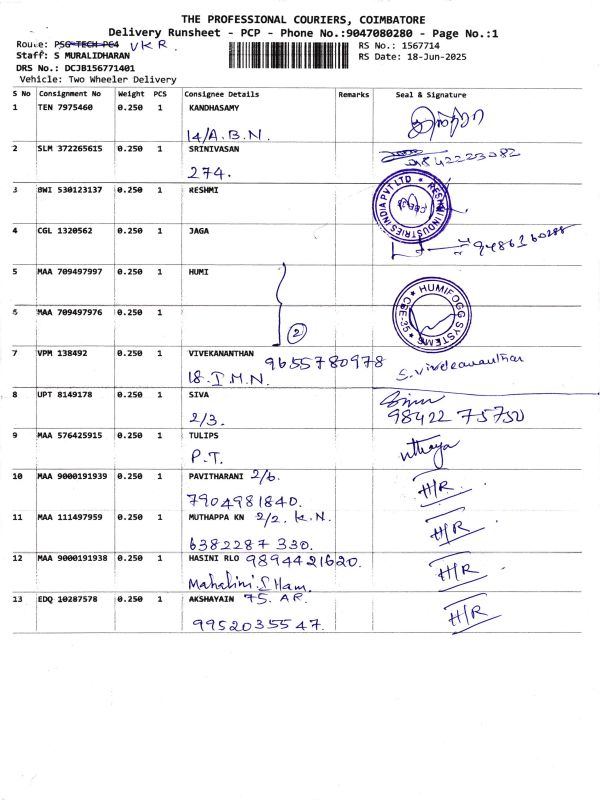 THE PROFESSIONAL COURIERS, COIMBATORE
Delivery Runsheet - PCP - Phone No.:9047080280 - Page No.:1
Route: PSG TECH PC4 VKR.
RS No.: 1567714
Staff: S MURALIDHARAN
RS Date: 18-Jun-2025
DRS No.: DCJB156771401
Vehicle: Two Wheeler Delivery
S No Consignment No Weight PCS Consignee Details Remarks Seal & Signature
1 TEN 7975460 0.250 1 KANDHASAMY
14/A.B.N.
2 SLM 372265615 0.250 1 SRINIVASAN 9842223082
274.
3 BWI 530123137 0.250 1 RESHMI
RESHMI INDUSTRIES INDIA PVT LTD
4 CGL 1320562 0.250 1 JAGA
9486160288
5 MAA 709497997 0.250 1 HUMI
6 MAA 709497976 0.250 1
2
HUMIFOGG SYSTEMS CBE-35
7 VPM 138492 0.250 1 VIVEKANANTHAN 9655780978
18.I.M.N. S.Vivekananthan
8 UPT 8149178 0.250 1 SIVA
2/3. 98422 75750
9 MAA 576425915 0.250 1 TULIPS
P.T. uthaya
10 MAA 9000191939 0.250 1 PAVITHARANI 2/6. H/R
7904981840.
11 MAA 111497959 0.250 1 MUTHAPPA KN 2/2. K.N. H/R
6382287 330.
12 MAA 9000191938 0.250 1 HASINI RLO 9894421620. H/R
Mahalini.S Ham.
13 EDQ 10287578 0.250 1 AKSHAYAIN 75. AR. H/R
9952035547.